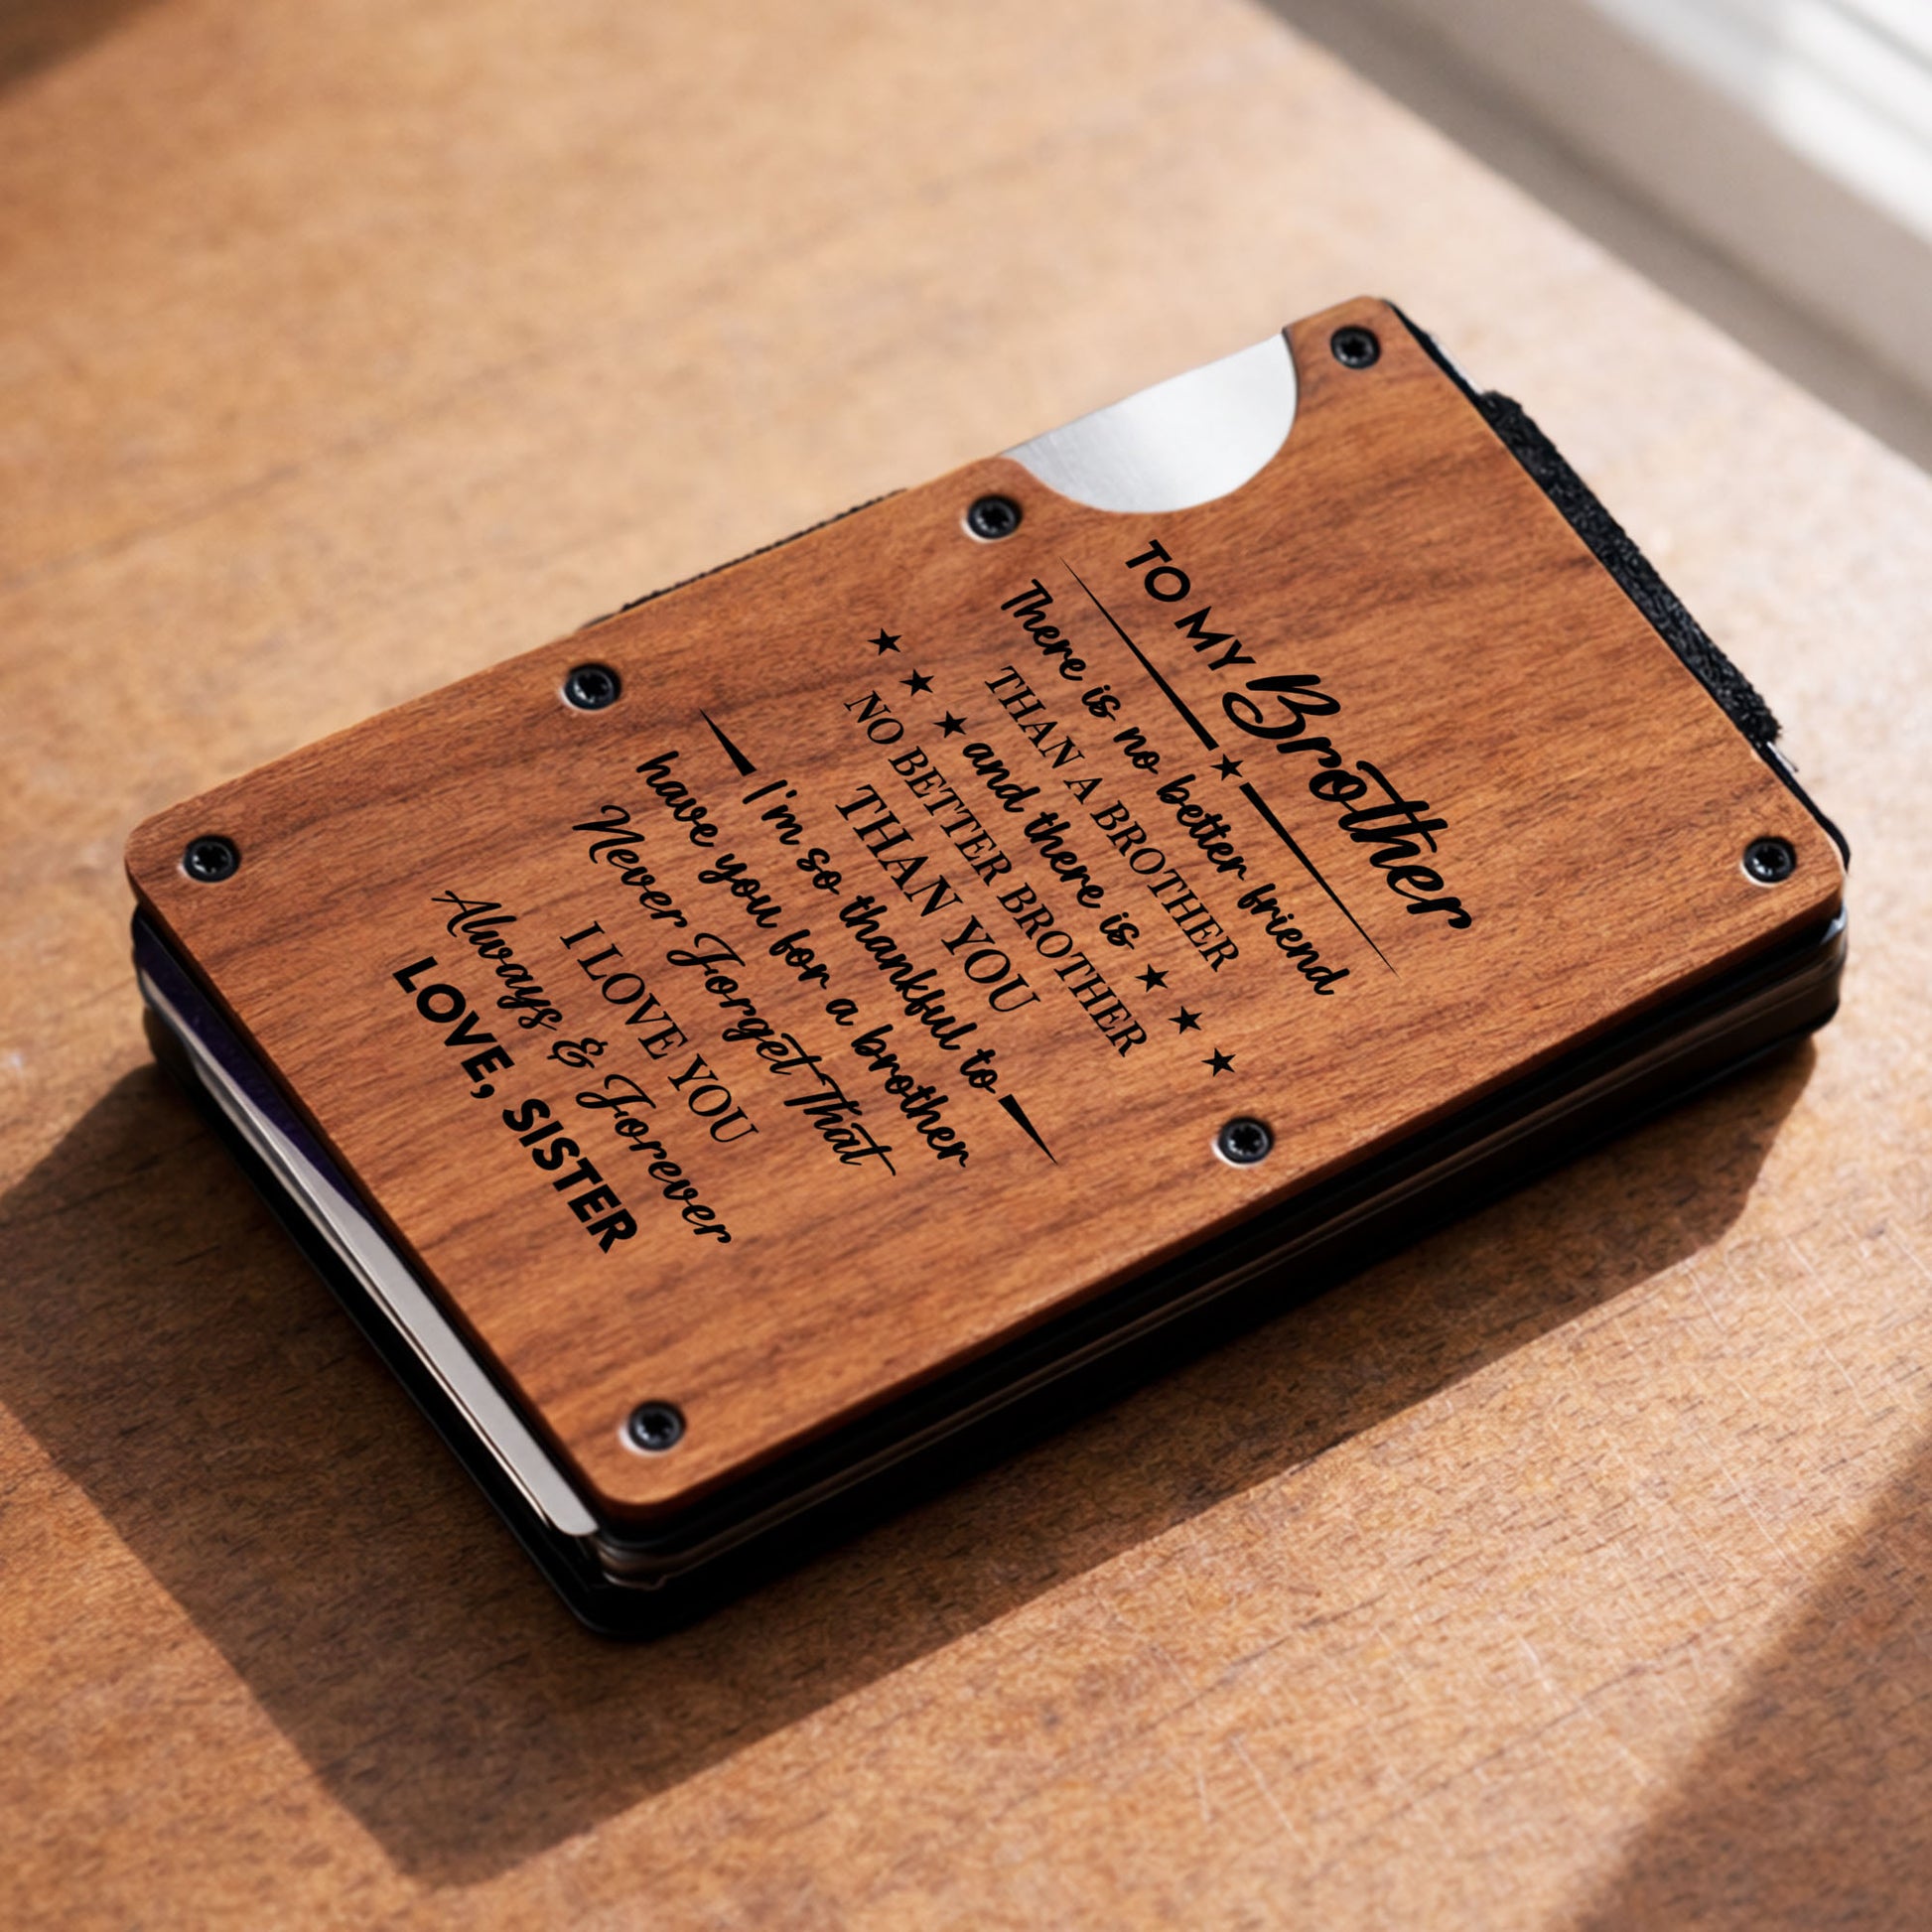 TO MY Brother
There is no better friend
THAN A BROTHER
and there is
NO BETTER BROTHER
THAN YOU
I'm so thankful to
have you for a brother
Never Forget That
I LOVE YOU
Always & Forever
LOVE, SISTER